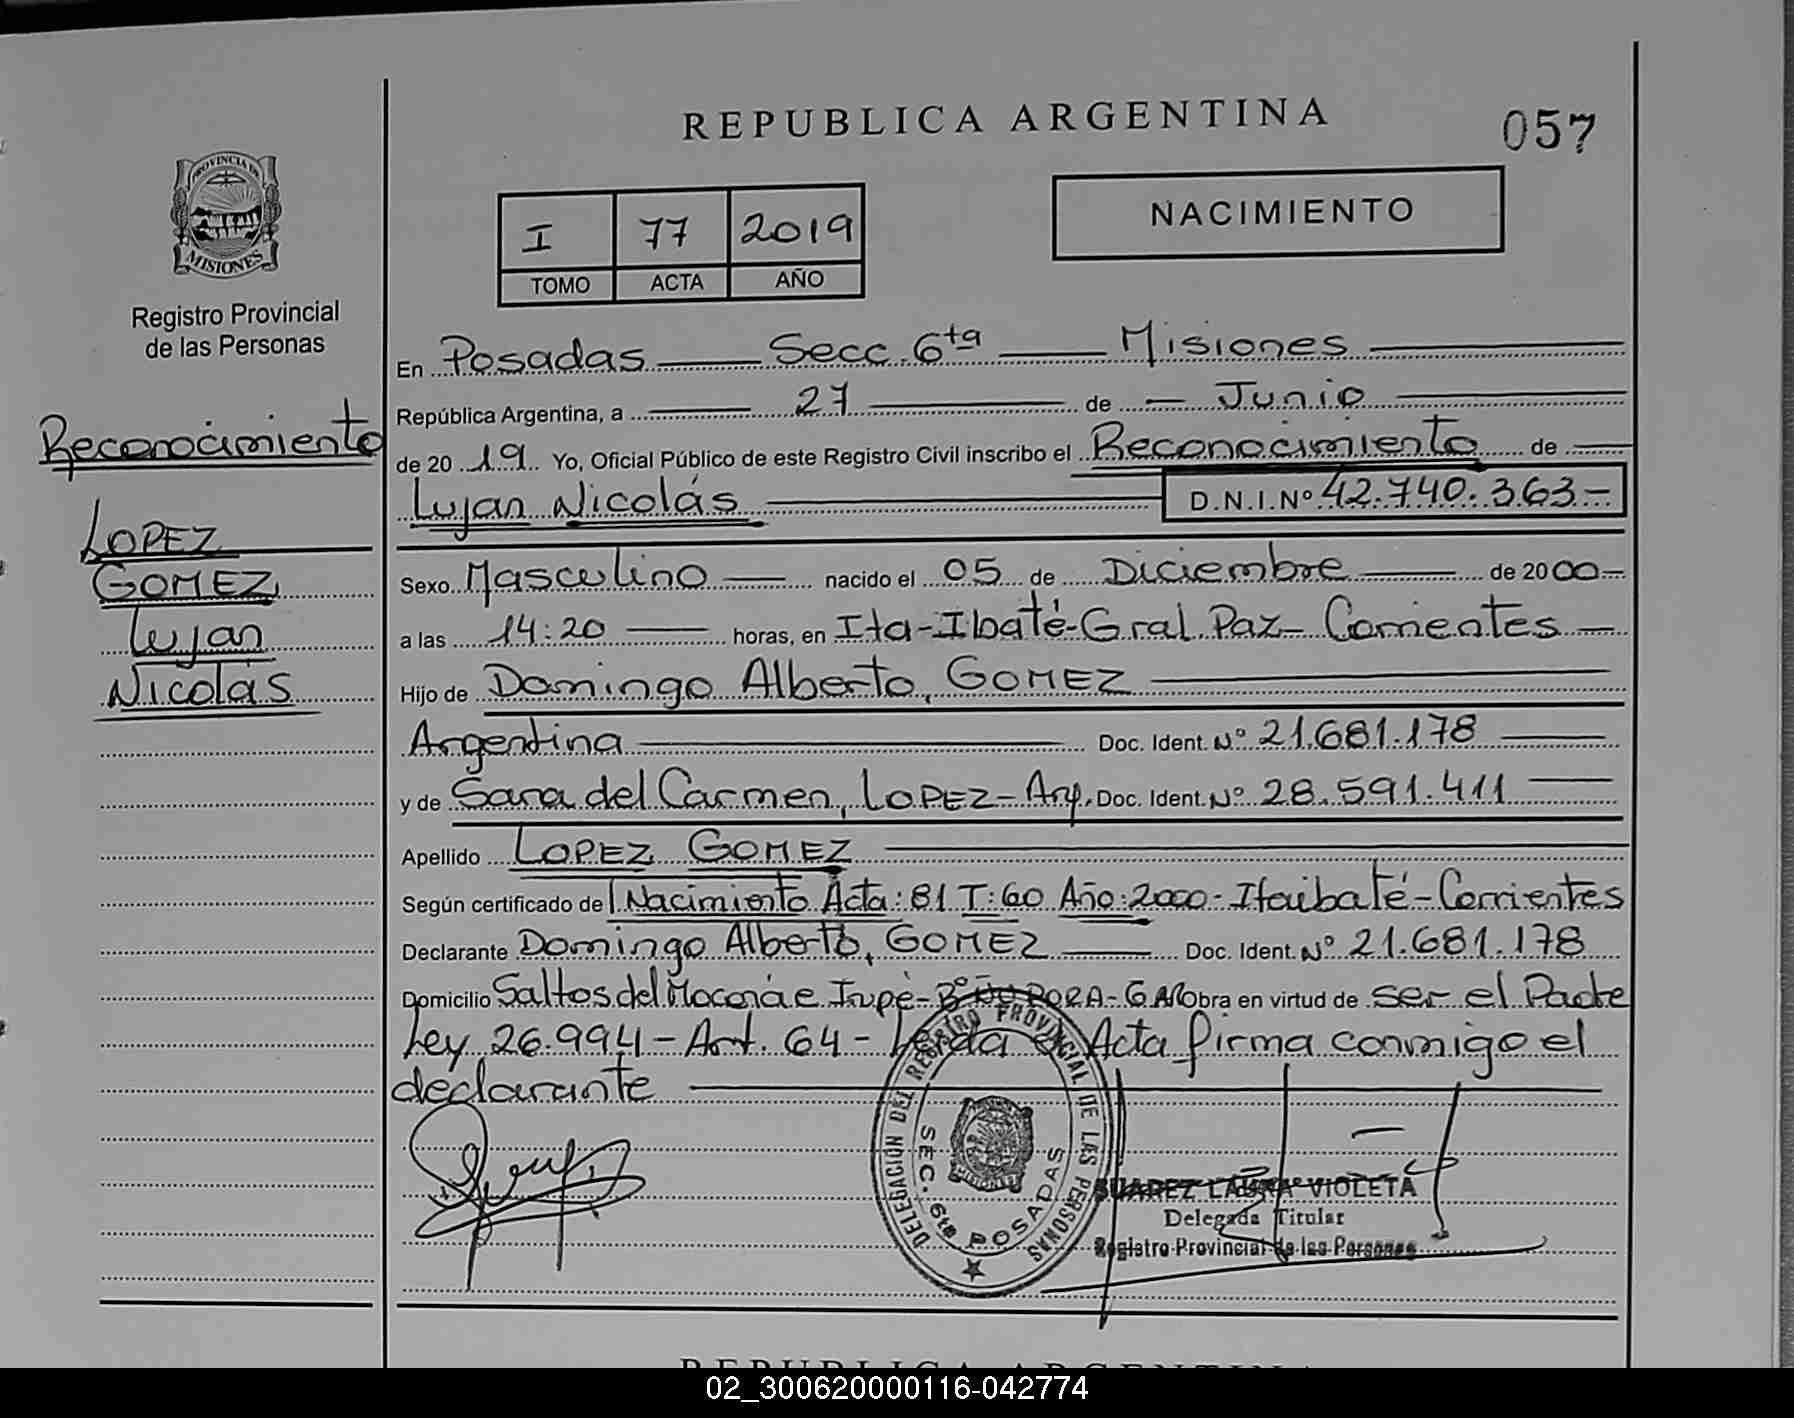 REPUBLICA ARGENTINA
057
NACIMIENTO
I 77 2019
TOMO ACTA AÑO
PROVINCIA DE
MISIONES
Registro Provincial
de las Personas
Reconocimiento
LOPEZ
GOMEZ
Lujan
Nicolás
En Posadas Secc 6ta Misiones
República Argentina, a 27 de Junio
de 2019 Yo, Oficial Público de este Registro Civil inscribo el Reconocimiento de
Lujan Nicolás D.N.I.Nº 42.740.363-
Sexo Masculino nacido el 05 de Diciembre de 2000
a las 14:20 horas, en Ita-Ibaté-Gral Paz- Corrientes
Hijo de Domingo Alberto, GOMEZ
Argentina Doc. Ident. Nº 21.681.178
y de Sara del Carmen, LOPEZ- Arg. Doc. Ident. Nº 28.591.411
Apellido LOPEZ GOMEZ
Según certificado de Nacimiento Acta: 81 T: 60 Año: 2000- Itaibaté-Corrientes
Declarante Domingo Alberto, GOMEZ Doc. Ident. Nº 21.681.178
Domicilio Saltos del Moconá e Irupé- Bº PORA- GAR obra en virtud de ser el Padre
Ley 26.994 - Art. 64 - Leída el Acta firma conmigo el
declarante
DELEGACIÓN DEL REGISTRO PROVINCIAL DE LAS PERSONAS
SEC. 6ta POSADAS
SUAREZ LAURA VIOLETA
Delegada Titular
Registro Provincial de las Personas
REPUBLICA ARGENTINA
02_300620000116-042774